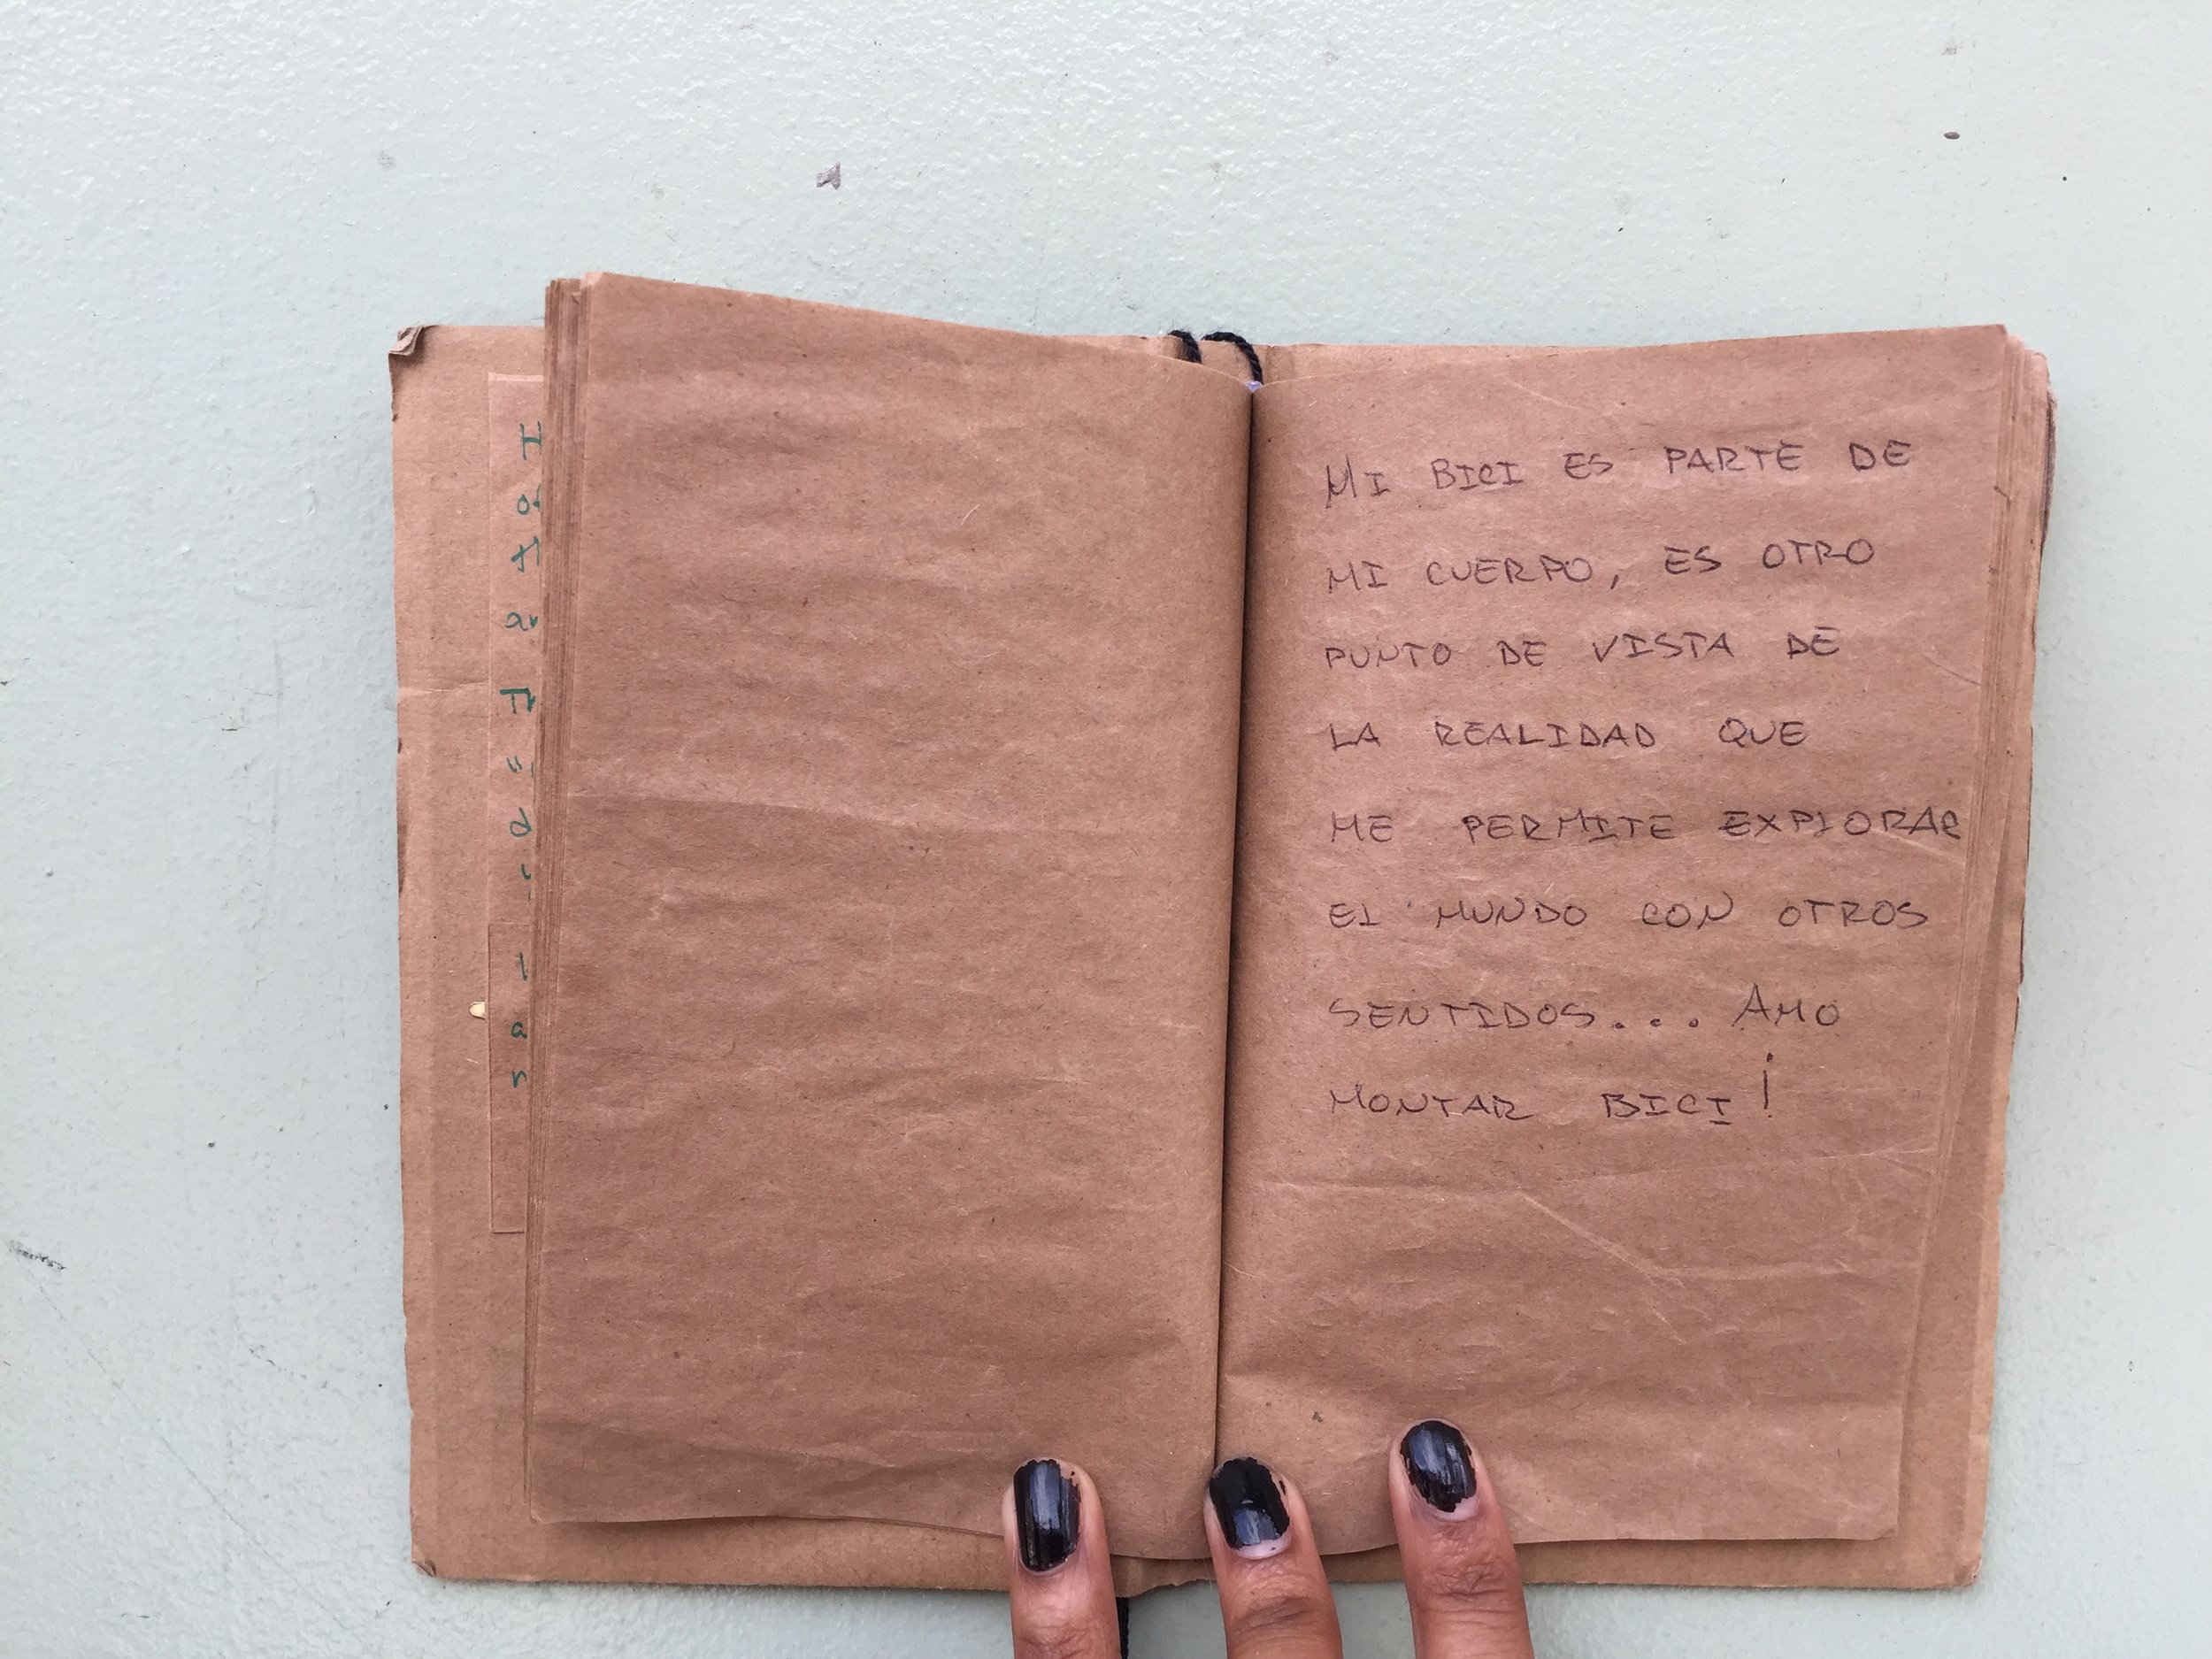 MI BICI ES PARTE DE
MI CUERPO, ES OTRO
PUNTO DE VISTA DE
LA REALIDAD QUE
ME PERMITE EXPLORAR
EL MUNDO CON OTROS
SENTIDOS... AMO
MONTAR BICI!